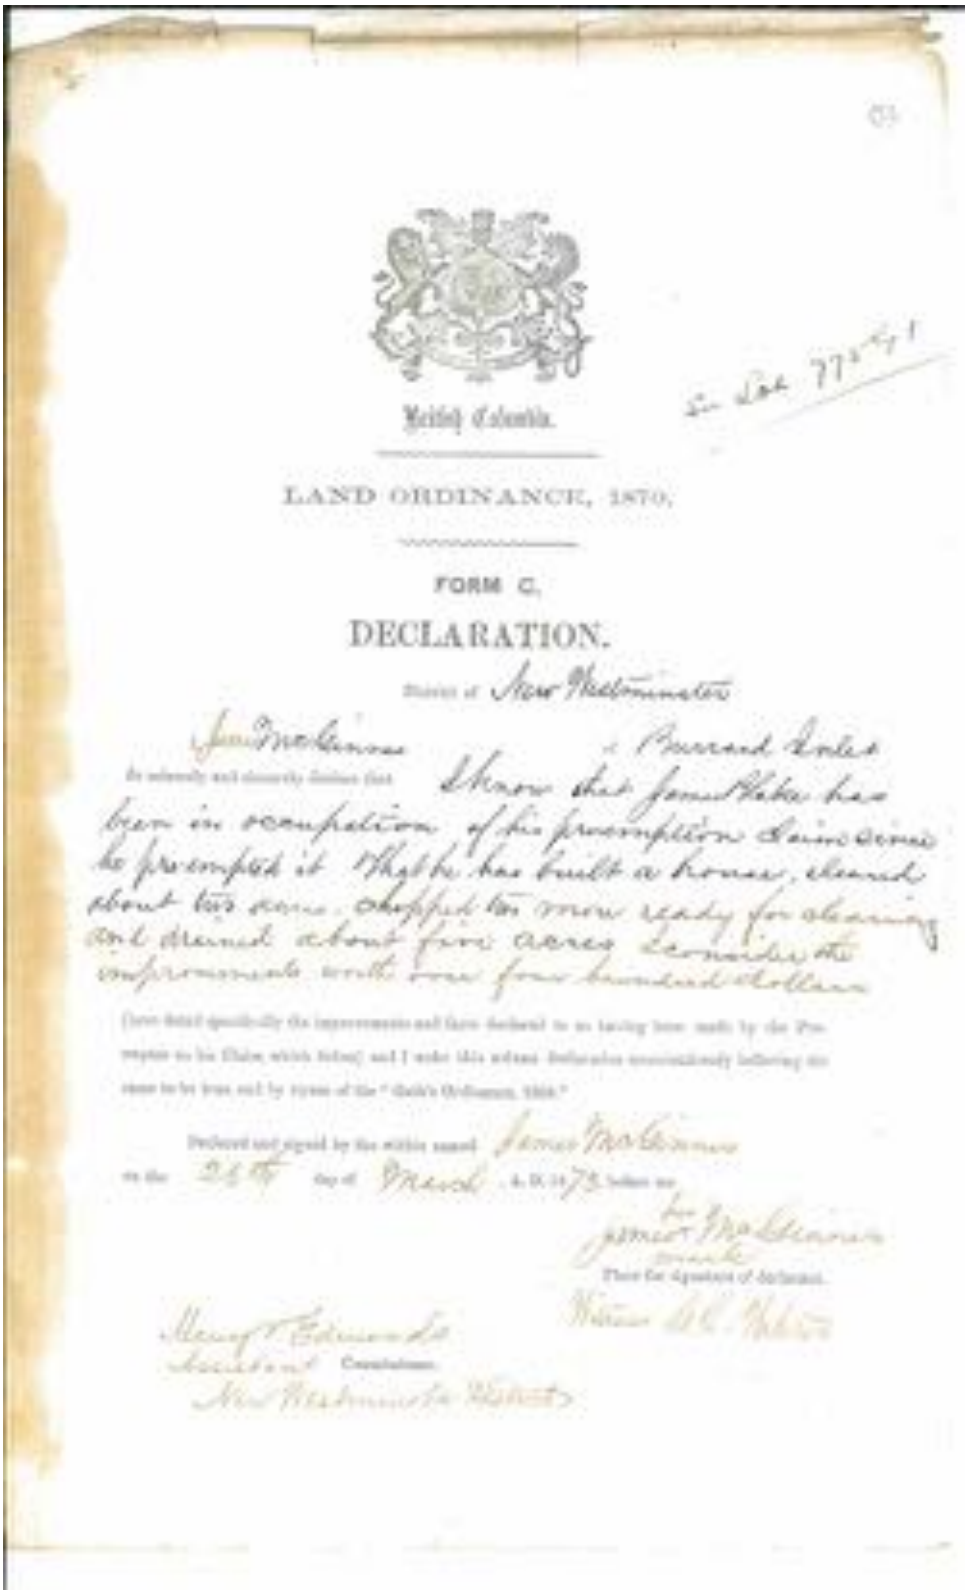 British Columbia.
LAND ORDINANCE, 1870.
FORM C.
DECLARATION.
District of New Westminster
James McGinnes of Burrard Inlet
do solemnly and sincerely declare that I know that James Blake has
been in occupation of his preemption Claim since
he preempted it That he has built a house, cleared
about two acres, chopped two more ready for clearing
and drained about five acres I consider the
improvements worth over four hundred dollars
(here detail specifically the improvements and facts declared to as having been made by the Pre-
emptor in his Claim, which follow) and I make this solemn declaration conscientiously believing the
same to be true, and by virtue of the "Oath's Ordinance, 1869."
Declared and signed by the within named James McGinnes
on the 26th day of March A. D. 1873, before me
his
James McGinnes
mark
Place for signature of declarant.
Witness
Henry V Edmonds
Assistant Commissioner.
New Westminster District